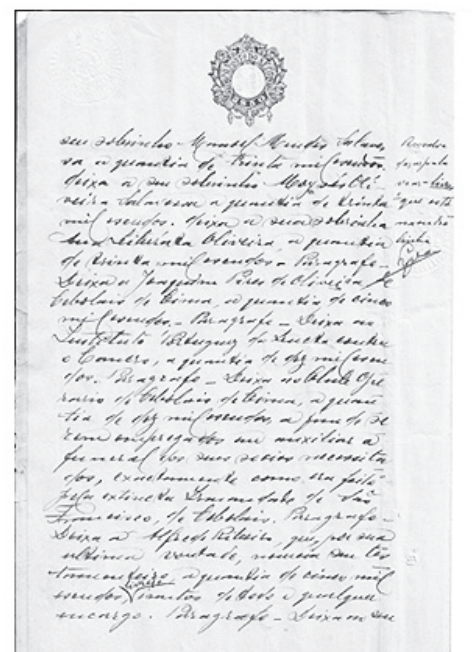 seu sobrinho Manoel Mendes Calava,
va a quantia de trinta mil escudos.
deixa a seu sobrinho Moysés Oli-
veira Calavessa a quantia de trinta
mil escudos. deixa a sua sobrinha
Anna Liberata Oliveira, a quantia
de trinta mil escudos - Paragrafo -
Deixa a Joaquim Pires de Oliveira, de
Cebolais de Cima, a quantia de cinco
mil escudos. - Paragrafo - Deixa ao
Instituto Portuguez da Lucta contra
o Cancro, a quantia de dez mil escu-
dos. Paragrafo - Deixa ao Clube Ope-
rario de Cebolais de Cima, a quan-
tia de dez mil escudos, a fim de se-
rem empregados em auxiliar a
funeral dos seus socios necessita-
dos, exactamente como era feito
pela extincta Irmandade de São
Francisco, de Cebolais. Paragrafo -
Deixa a Alfredo Ribeiro, que, por sua
ultima vontade, nomeia seu tes-
tamenteiro, a quantia de cinco mil
escudos, isentos de todo e qualquer
encargo. Paragrafo - Deixa a seu
que está
linha